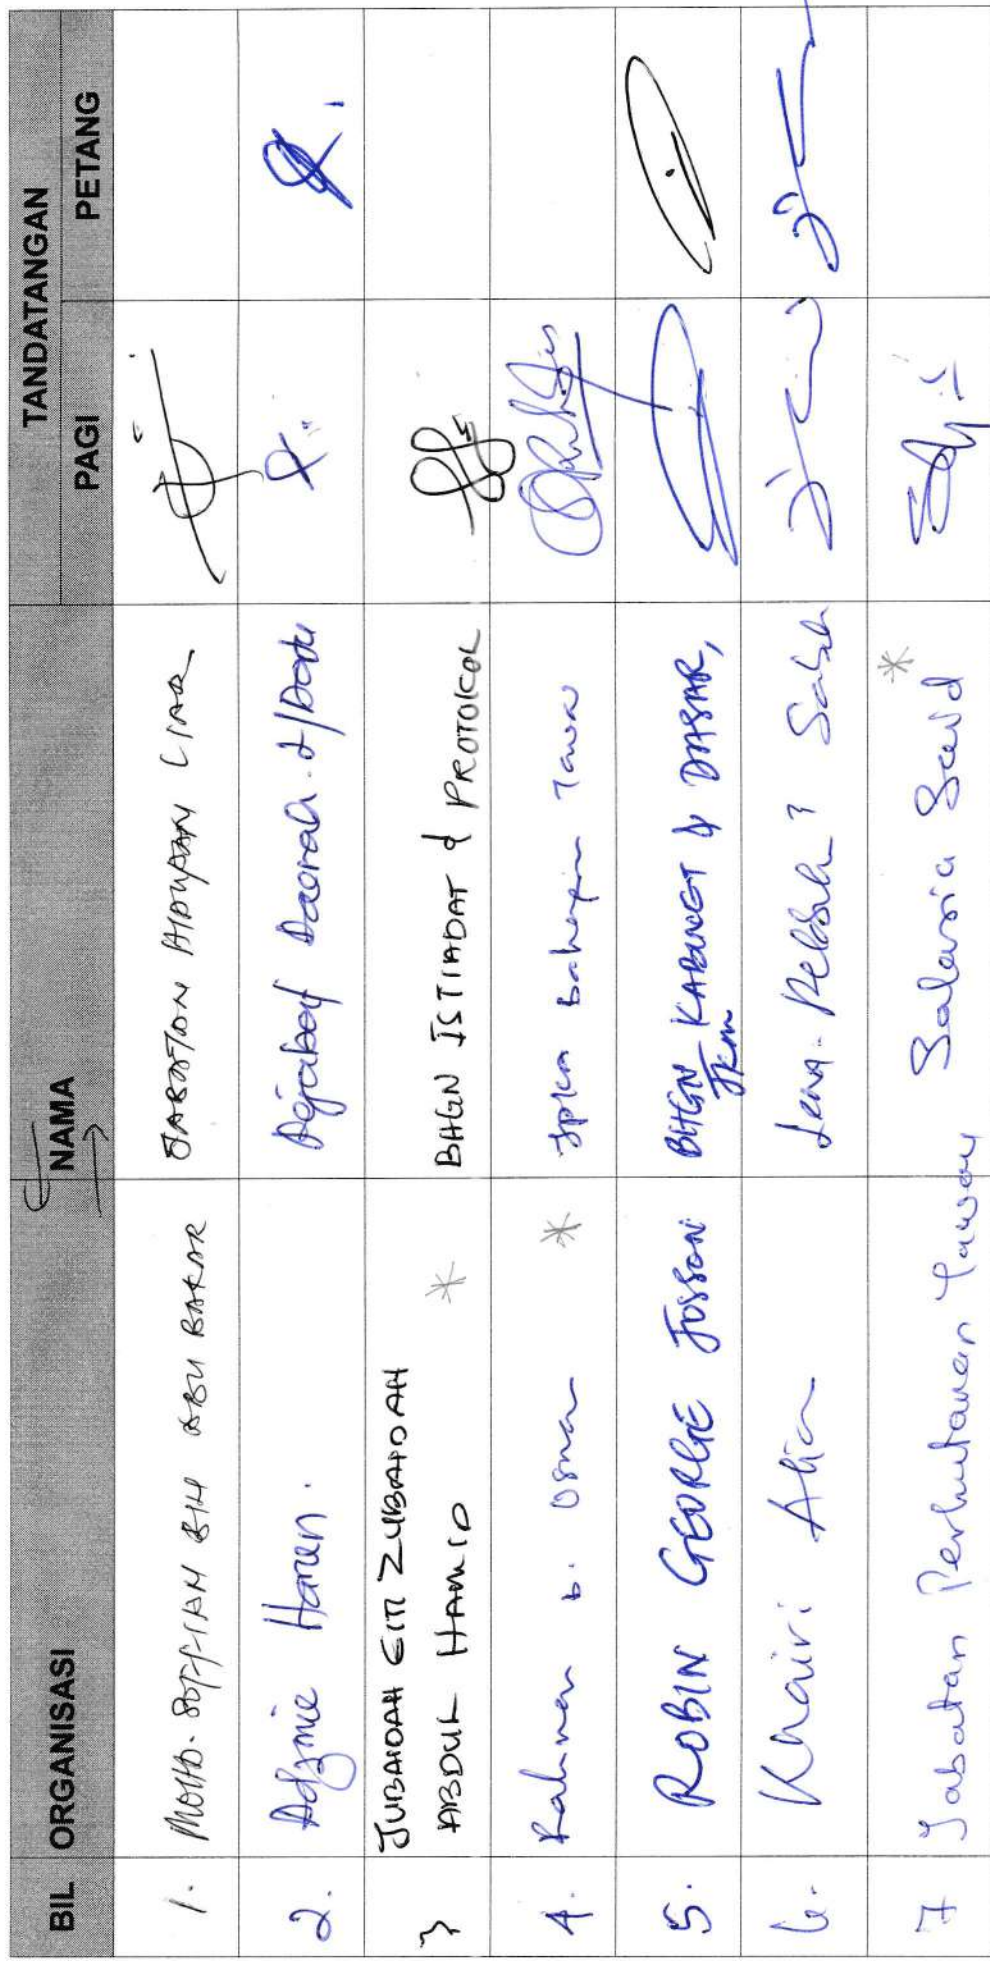 BIL ORGANISASI NAMA TANDATANGAN
PAGI PETANG
1. MOHD. SOFFIAN BIN ABU BAKAR JABATAN HIDUPAN LIAR
2. Adzmie Hanen. Pejabat Daerah L/Datu
3 JUBAIDAH SITI ZUBAIDAH
ABDUL HAMID * BHGN ISTIADAT & PROTOKOL
4. Rahman b. Osman * Bahagian Tawau
5. ROBIN GEORGE JOSSON BHGN KABINET & DASAR,
JKM
6. Khairi Sabah
7 Jabatan Perhutanan Tawau Said *